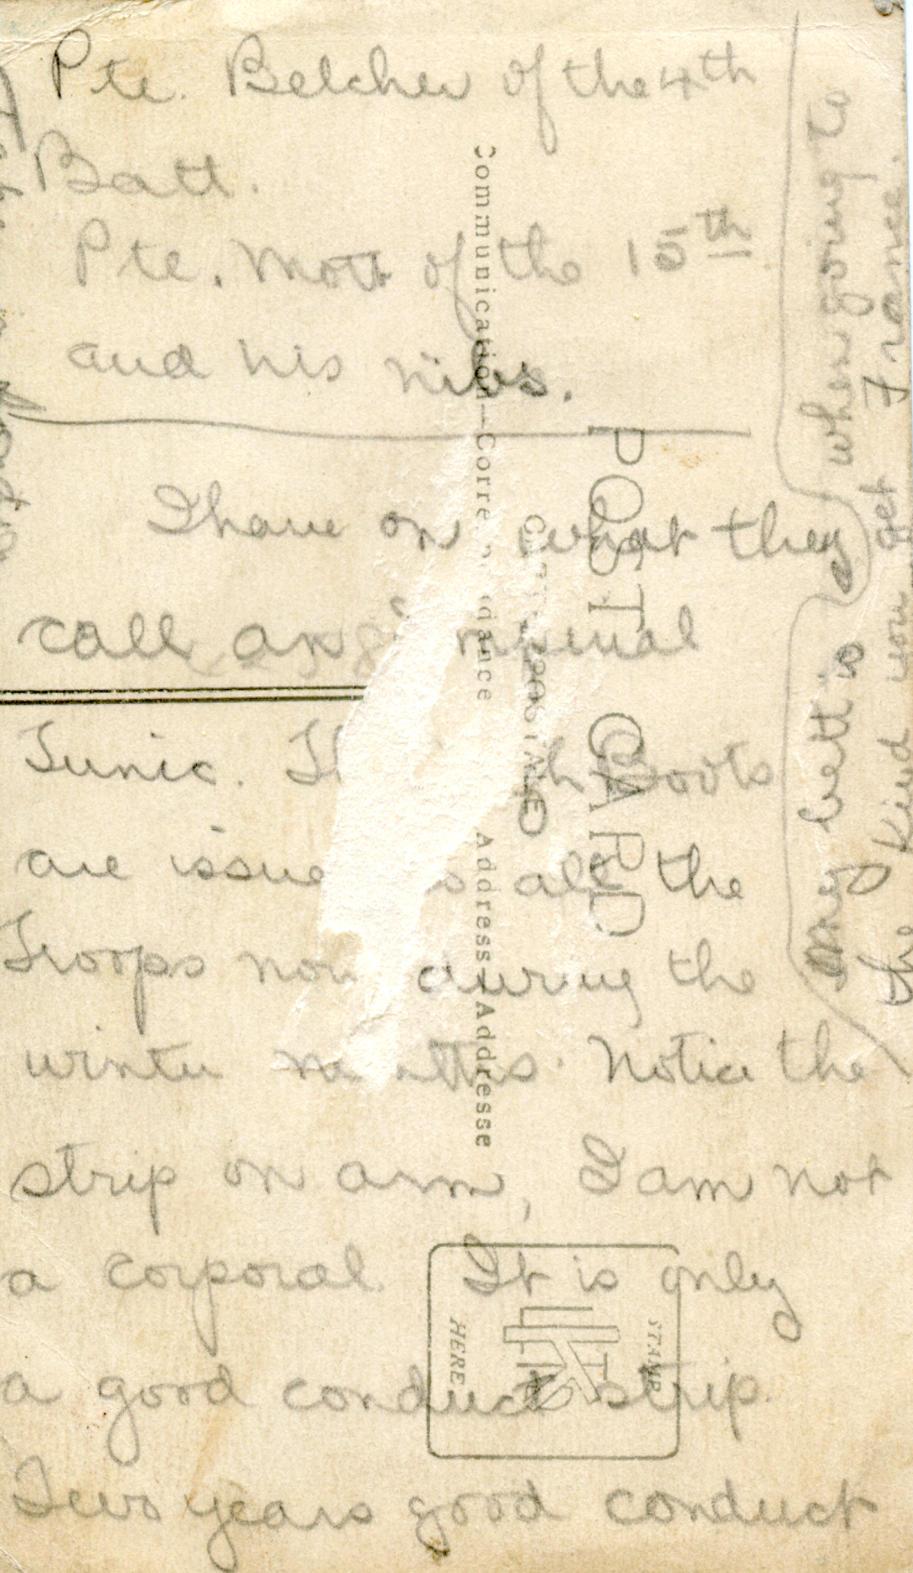 Pte. Belcher of the 4th
Batt.
Pte. Mott of the 15th
and his nibs.
I have on what they
call an
Tunic. Boots
are issue all the
Troops now during the
winter Notice the
strip on arm, I am not
a corporal. It is only
a good conduct strip.
Two years good conduct
My belt is
the kind you get
when going to
France.
POST CARD
Communication—Corre dance
Address—Addresse
STAMP
HERE